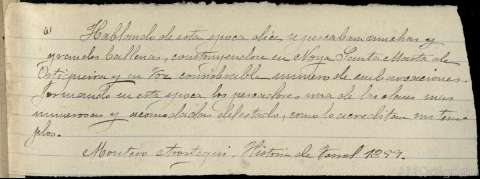 Hablando de esta epoca dice, se pescaban muchas y
grandes ballenas, construyendose en Noya Santa Marta de
Ortigueira y en Vor considerable numero de embarcaciones.
formando en esta epoca los pescadores una de las clases mas
numerosas y acomodadas del estado, como lo acreditan sus tem
plos.
Montero Arostegui. Historia de Ferrol 1859.